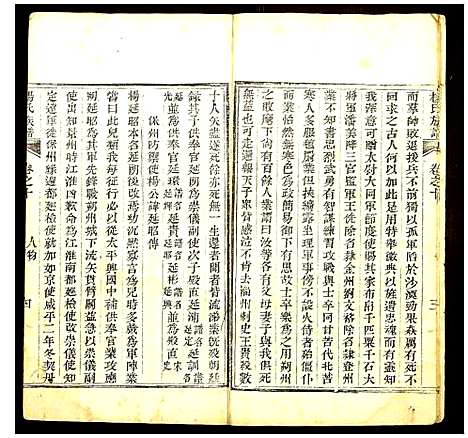 楊氏族譜
卷之
而羣帥敗援兵不前獨以孤軍陷於沙漠勁果猋厲有死不
回求之古人何以加此是用特舉徽典以旌遺忠魂而有靈知
我深意可贈太尉大同軍節度使賜其家布帛千匹粟千石大
將軍潘美降三官監軍王侁除名隸金州劉文裕除名隸登州
業不知書忠烈武勇有智謀練習攻戰與士卒同甘苦代北苦
寒人多服氈罽業但挾纊露坐治軍事傍不設火侍者殆僵仆
而業怡然無寒色為政簡易御下有恩故士卒樂為之用朔州
之敗麾下尚百餘人業謂曰汝等各有父母妻子與我俱死
無益也可走還報天子眾皆感泣不肯去淄州刺史王貴殺數
十人矢盡遂死餘亦死無一生還者聞者皆流涕業既沒朝廷
錄其子供奉官延朗為崇儀副使次子殿直延浦延訓
並為供奉官延瓌延貴延彬並為殿直
保州防禦使楊公延昭傳
楊延昭本名延朗後改焉幼沈默寡言為兒時多戲為軍陣業
嘗曰此兒類我每征行必以從太平興國中補供奉官業攻應
朔延昭為其軍先鋒戰朔州城下流矢貫臂鬪益急以崇儀使知
景州時江淮凶歉命為江淮南都巡檢使改崇儀使知
定遠軍徙保州緣邊都巡檢使就加如京使咸平二年冬契丹
楊氏族譜
卷之
人物